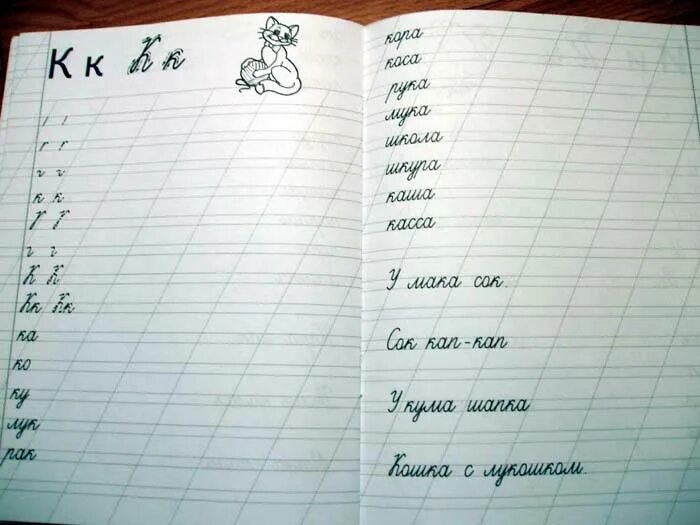 К к К к
к к
К К
Кк Кк
ка
ко
ку
лук
рак
кора
коса
рука
мука
школа
шкура
каша
касса
У мака сок.
Сок кап-кап
У кума шапка
Кошка с лукошком.